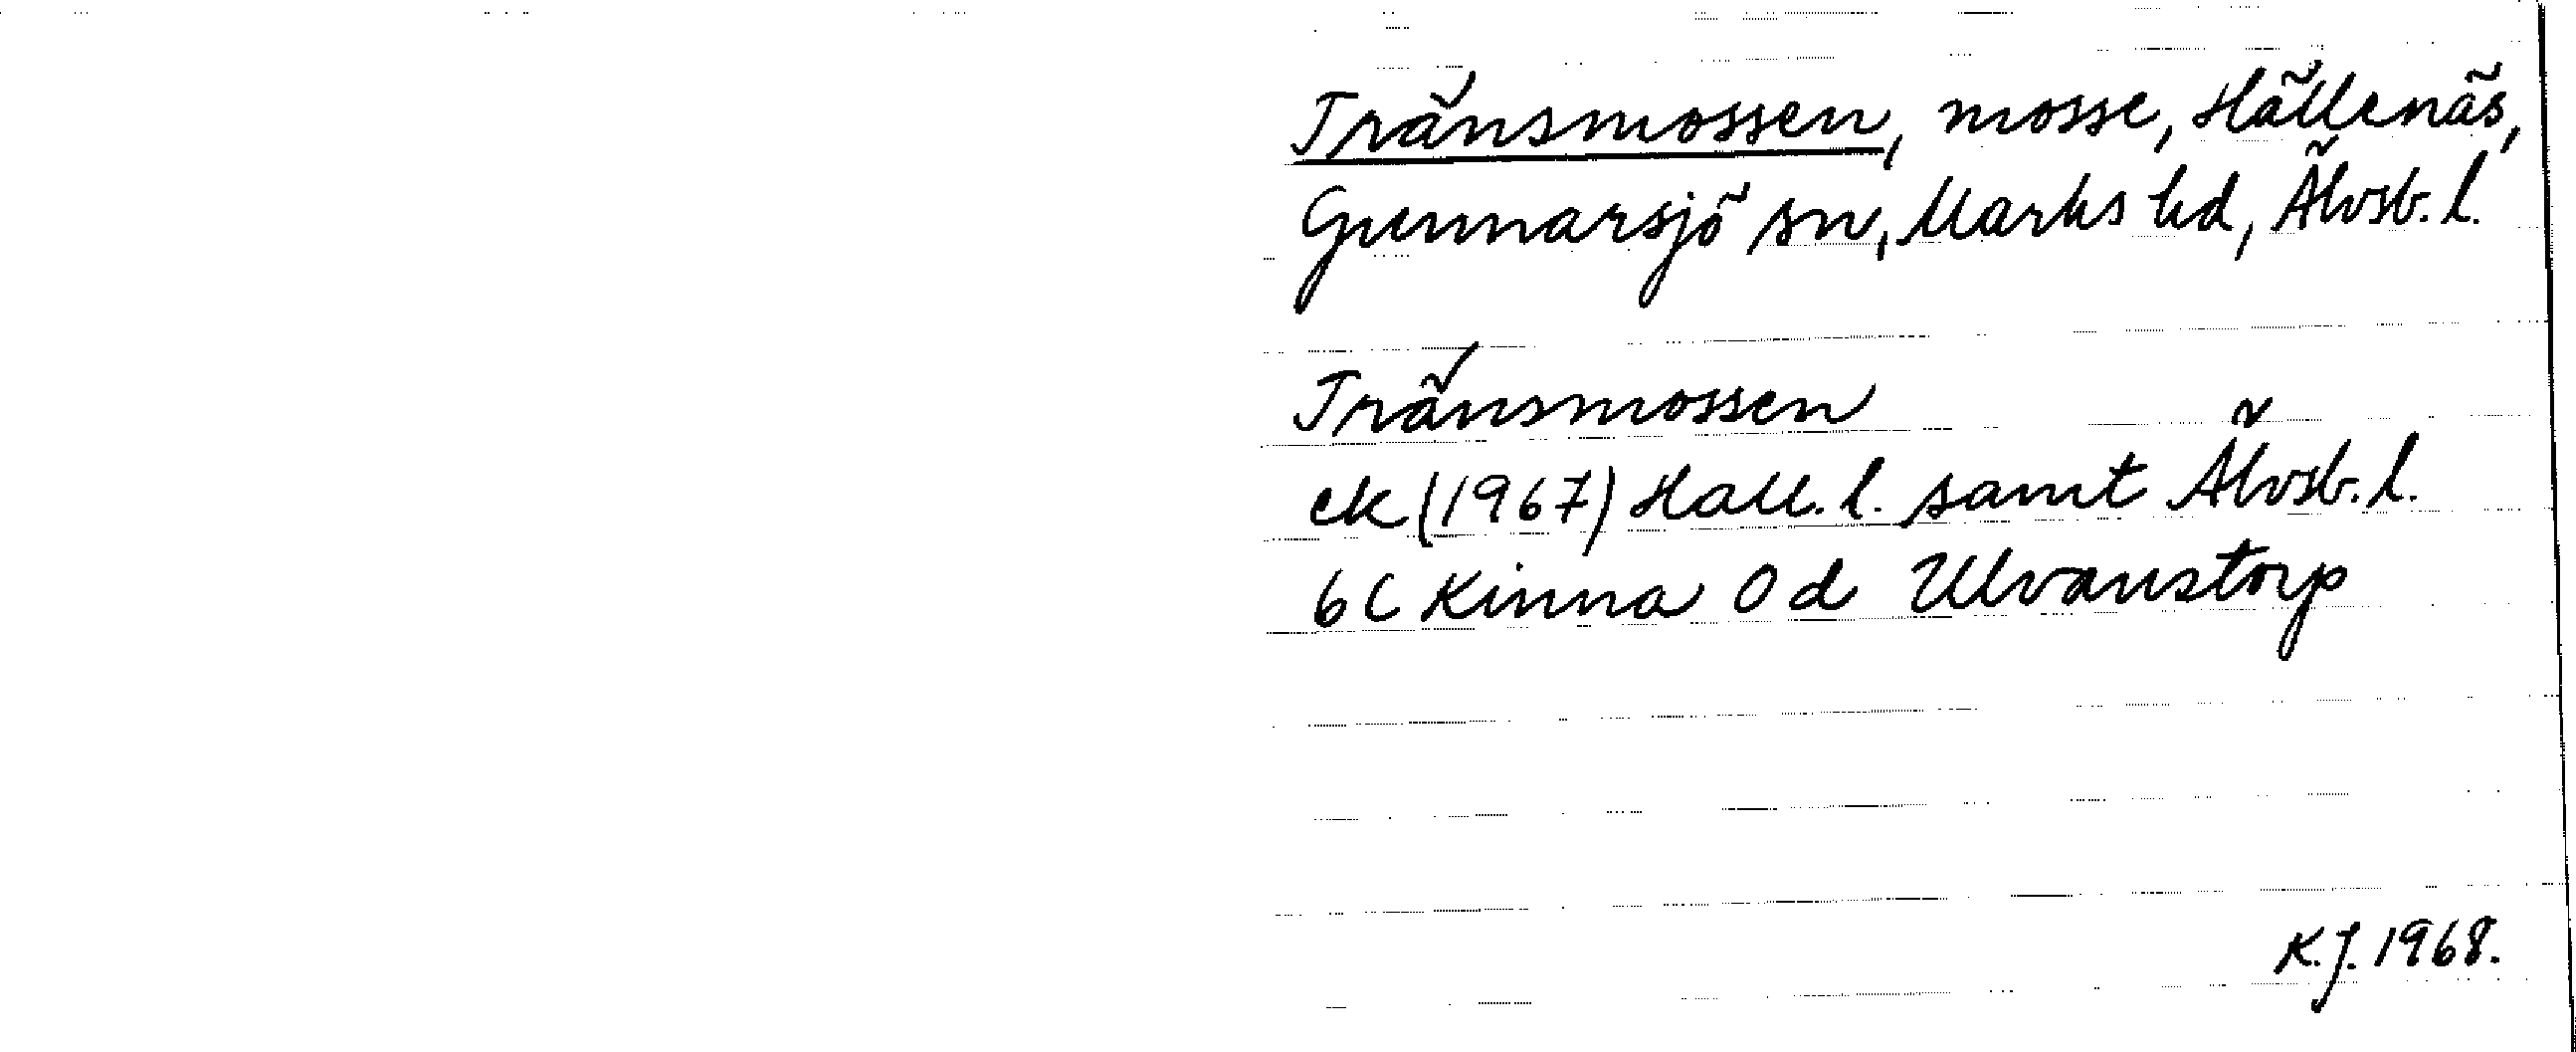 Tränsmossen, mosse, Hällenäs,
Gunnarsjö sn, Marks hd, Älvsb. l.
Tränsmossen
ek (1967) Hall. l. samt Älvsb. l.
6C Kinna 0d Ulvanstorp
K.J. 1968.